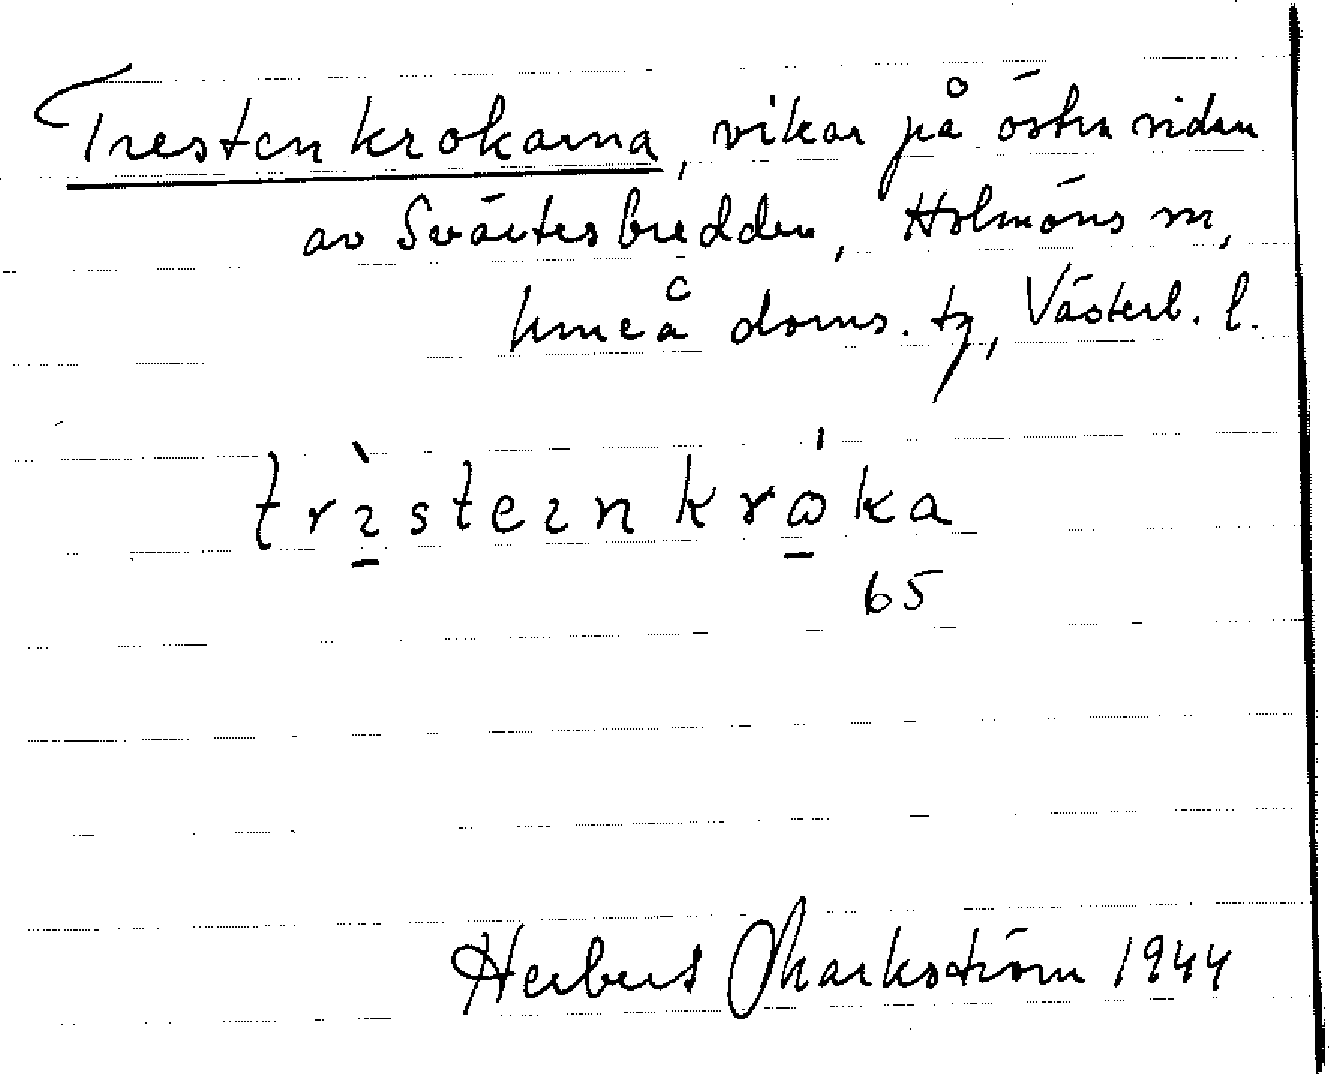 Trestenkrokarna, vikar på östra sidan
av Svärtesbredden, Holmöns sn,
Umeå doms. tg, Västerb. l.
trìsteınkrǿka
65
Herbert Markström 1944